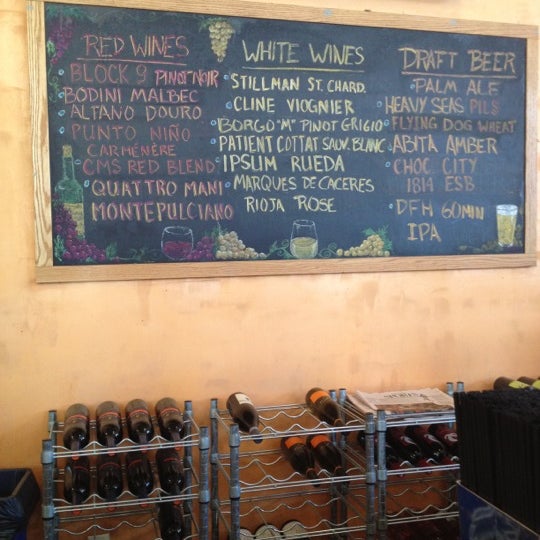 RED WINES
BLOCK 9 PINOT NOIR
BODINI MALBEC
ALTANO DOURO
PUNTO NIÑO
CARMÉNÉRE
CMS RED BLEND
QUATTRO MANI
MONTEPULCIANO
WHITE WINES
STILLMAN ST. CHARD.
CLINE VIOGNIER
BORGO "M" PINOT GRIGIO
PATIENT COTTAT SAUV. BLANC
IPSUM RUEDA
MARQUES DE CACERES
RIOJA ROSE
DRAFT BEER
PALM ALE
HEAVY SEAS PILS
FLYING DOG WHEAT
ABITA AMBER
CHOC. CITY
1814 ESB
DFH 60 MIN
IPA
SPORTS